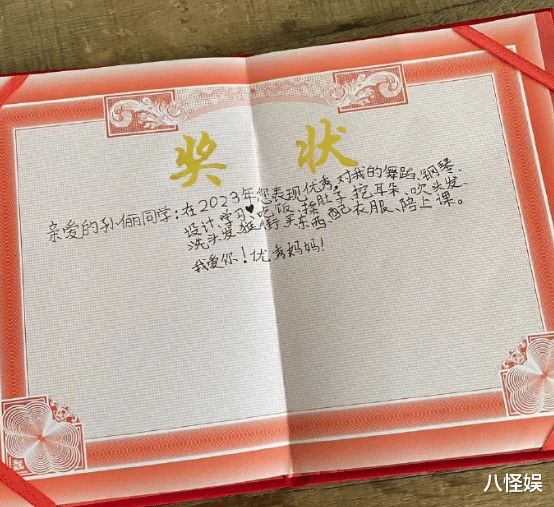 奖 状
亲爱的孙俪同学:在2023年您表现优秀,对我的舞蹈、钢琴、
设计、学习♥吃饭、揉肚子、挖耳朵、吹头发、
洗头发、逛街买东西、配衣服、陪上课。
我爱你!优秀妈妈!
八怪娱